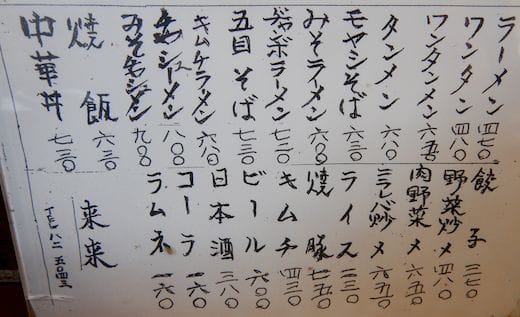 ラーメン 四七〇
ワンタン 四八〇
ワンタンメン 六五〇
タンメン 六八〇
モヤシそば 六三〇
みそラーメン 六〇〇
ジャンボラーメン 七三〇
五目そば 七三〇
キムチラーメン 六八〇
チャーシューメン 八〇〇
みそチャーシューメン 九〇〇
焼飯 六三〇
中華丼 七三〇
餃子 三七〇
野菜炒メ 四八〇
肉野菜メ 六五〇
ニラレバ炒メ 六五〇
ライス 二三〇
焼豚 七五〇
キムチ 四三〇
ビール 六〇〇
日本酒 三八〇
コーラ 一六〇
ラムネ 一六〇
来来